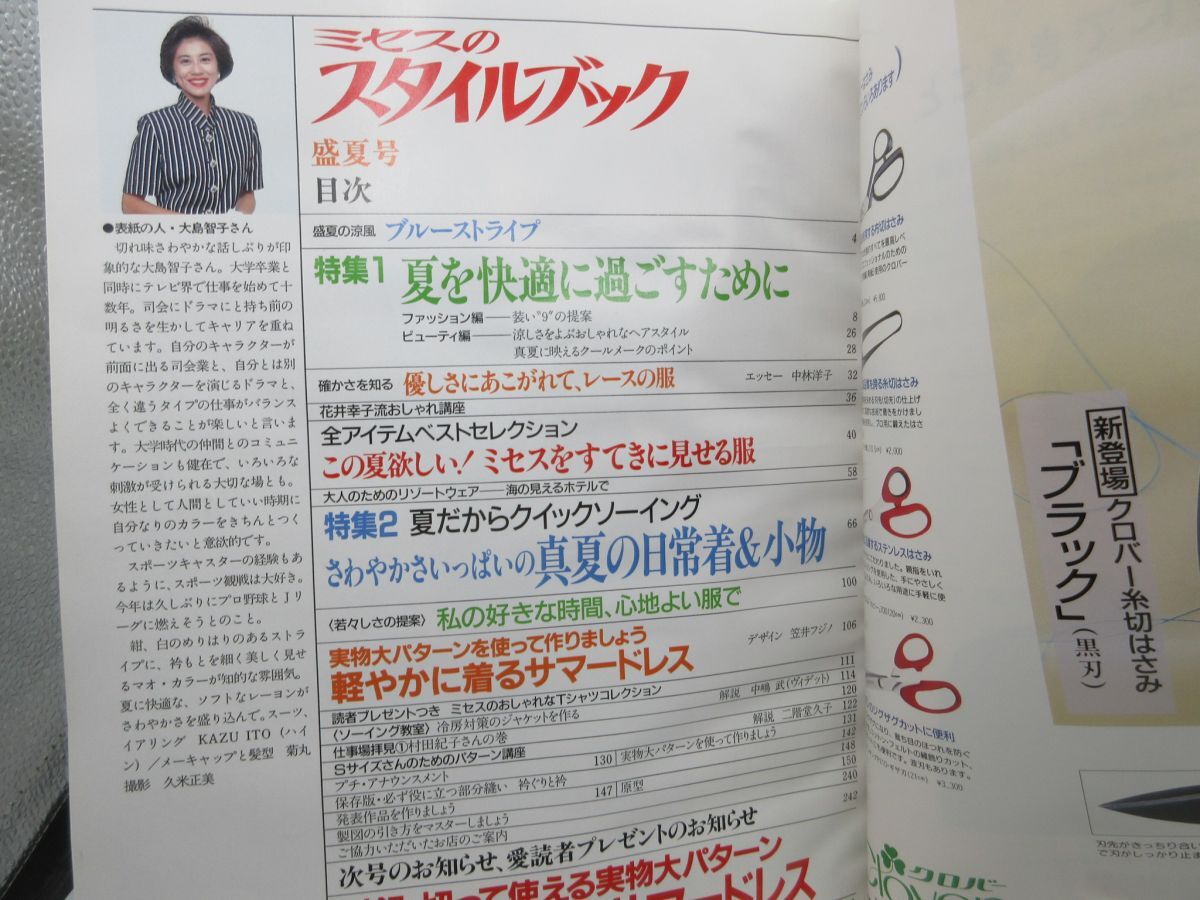 ミセスの
スタイルブック
盛夏号
目次
●表紙の人・大島智子さん
切れ味さわやかな話しぶりが印
象的な大島智子さん。大学卒業と
同時にテレビ界で仕事を始めて十
数年。司会にドラマにと持ち前の
明るさを生かしてキャリアを重ね
ています。自分のキャラクターが
前面に出る司会業と、自分とは別
のキャラクターを演じるドラマと、
全く違うタイプの仕事がバランス
よくできることが楽しいと言いま
す。大学時代の仲間とのコミュニ
ケーションも健在で、いろいろな
刺激が受けられる大切な場とも。
女性として人間としていい時期に
自分なりのカラーをきちんとつく
っていきたいと意欲的です。
スポーツキャスターの経験もあ
るように、スポーツ観戦は大好き。
今年は久しぶりにプロ野球とJリ
ーグに燃えそうとのこと。
紺、白のめりはりのあるストラ
イプに、衿もとを細く美しく見せ
るマオ・カラーが知的な雰囲気。
夏に快適な、ソフトなレーヨンが
さわやかさを盛り込んで。スーツ、
イアリング KAZU ITO(ハイ
ン)／メーキャップと髪型 菊丸
撮影 久米正美
盛夏の涼風 ブルーストライプ 4
特集1 夏を快適に過ごすために
ファッション編——装い“9”の提案 8
ビューティ編——涼しさをよぶおしゃれなヘアスタイル 26
真夏に映えるクールメークのポイント 28
確かさを知る 優しさにあこがれて、レースの服 エッセー 中林洋子 32
花井幸子流おしゃれ講座 36
全アイテムベストセレクション
この夏欲しい! ミセスをすてきに見せる服 40
大人のためのリゾートウェア——海の見えるホテルで 58
特集2 夏だからクイックソーイング
さわやかさいっぱいの真夏の日常着&小物 66
〈若々しさの提案〉 私の好きな時間、心地よい服で 100
実物大パターンを使って作りましょう
軽やかに着るサマードレス デザイン 笠井フジノ 106
読者プレゼントつき ミセスのおしゃれなTシャツコレクション 111
〈ソーイング教室〉 冷房対策のジャケットを作る 解説 中嶋 武(ヴィデット) 114
仕事場拝見①村田紀子さんの巻 120
Sサイズさんのためのパターン講座 解説 二階堂久子 122
プチ・アナウンスメント 130 実物大パターンを使って作りましょう 131
保存版・必ず役に立つ部分縫い 衿ぐりと衿 142
発表作品を作りましょう 147 原型 148
製図の引き方をマスターしましょう 150
ご協力いただいたお店のご案内 240
次号のお知らせ、愛読者プレゼントのお知らせ 242
切って使える実物大パターン
マードレス
新登場
クロバー糸切はさみ
「ブラック」(黒刃)
¥2,000
¥2,300
¥3,300
ジグザグカットに便利
クロバー